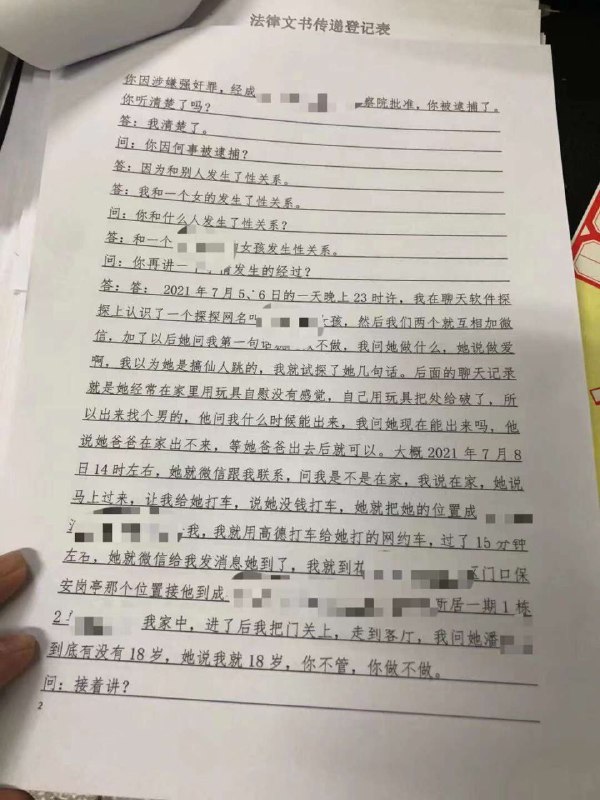 法律文书传递登记表
你因涉嫌强奸罪，经成 察院批准，你被逮捕了。
你听清楚了吗？
答：我清楚了。
问：你因何事被逮捕？
答：因为和别人发生了性关系。
答：我和一个女的发生了性关系。
问：你和什么人发生了性关系？
答：和一个 女孩发生性关系。
问：你再讲一 情发生的经过？
答：答：2021年7月5、6日的一天晚上23时许，我在聊天软件探
探上认识了一个探探网名 女孩，然后我们两个就互相加微
信，加了以后她问我第一句 不做，我问她做什么，她说做爱
啊，我以为她是搞仙人跳的，我就试探了她几句话。后面的聊天记录
就是她经常在家里用玩具自慰没有感觉，自己用玩具把处给破了，所
以出来找个男的，他问我什么时候能出来，我问她现在能出来吗，他
说她爸爸在家出不来，等她爸爸出去后就可以。大概2021年7月8
日14时左右，她就微信跟我联系，问我是不是在家，我说在家，她说
马上过来，让我给她打车，说她没钱打车，她就把她的位置成
我，我就用高德打车给她打的网约车，过了15分钟
左右，她就微信给我发消息她到了，我就到 门口保
安岗亭那个位置接他到成 所居一期1栋
2 我家中，进了后我把门关上，走到客厅，我问她潘
到底有没有18岁，她说我就18岁，你不管，你做不做。
问：接着讲？
2